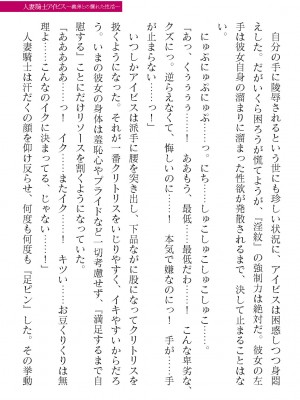 人妻騎士アイビス
自分の手に陵辱されるという世にも珍しい状況に、アイビスは困惑しつつ身悶
えした。だがいくら困ろうが慌てようが、『淫紋』の強制力は絶対だ。彼女の左
手は彼女自身の溜まりに溜まった性欲が発散されるまで、決して止まることはな
い。
にゅぷにゅぷにゅぷ……っ。にち……しゅこしゅこしゅこしゅこ……。
「あっ、くぅぅぅぅ……！　ああもう、最低、最低だわ……！　こんな卑劣な、
クズに……っ。逆らえなくて、悔しいのに……！　本気で嫌なのにっ！　手が……手
が止まらない……っ」
いつしかアイビスは派手に腰を突き出し、下品ながに股になってクリトリスを
扱くようになった。それが一番クリトリスをいじりやすく、イキやすいからだろ
う。いまの彼女の身体は羞恥心やプライドなど一切考慮せず、『満足するまで自
慰する』ことにだけリソースを割くようになっていた。
「あああああ……っ！　イク……またイク……！　キツい……お豆くりくりは無
理よ……こんなのイクに決まってる、じゃない……！」
人妻騎士は汗だくの顔を仰け反らせ、何度も何度も『足ピン』した。その挙動